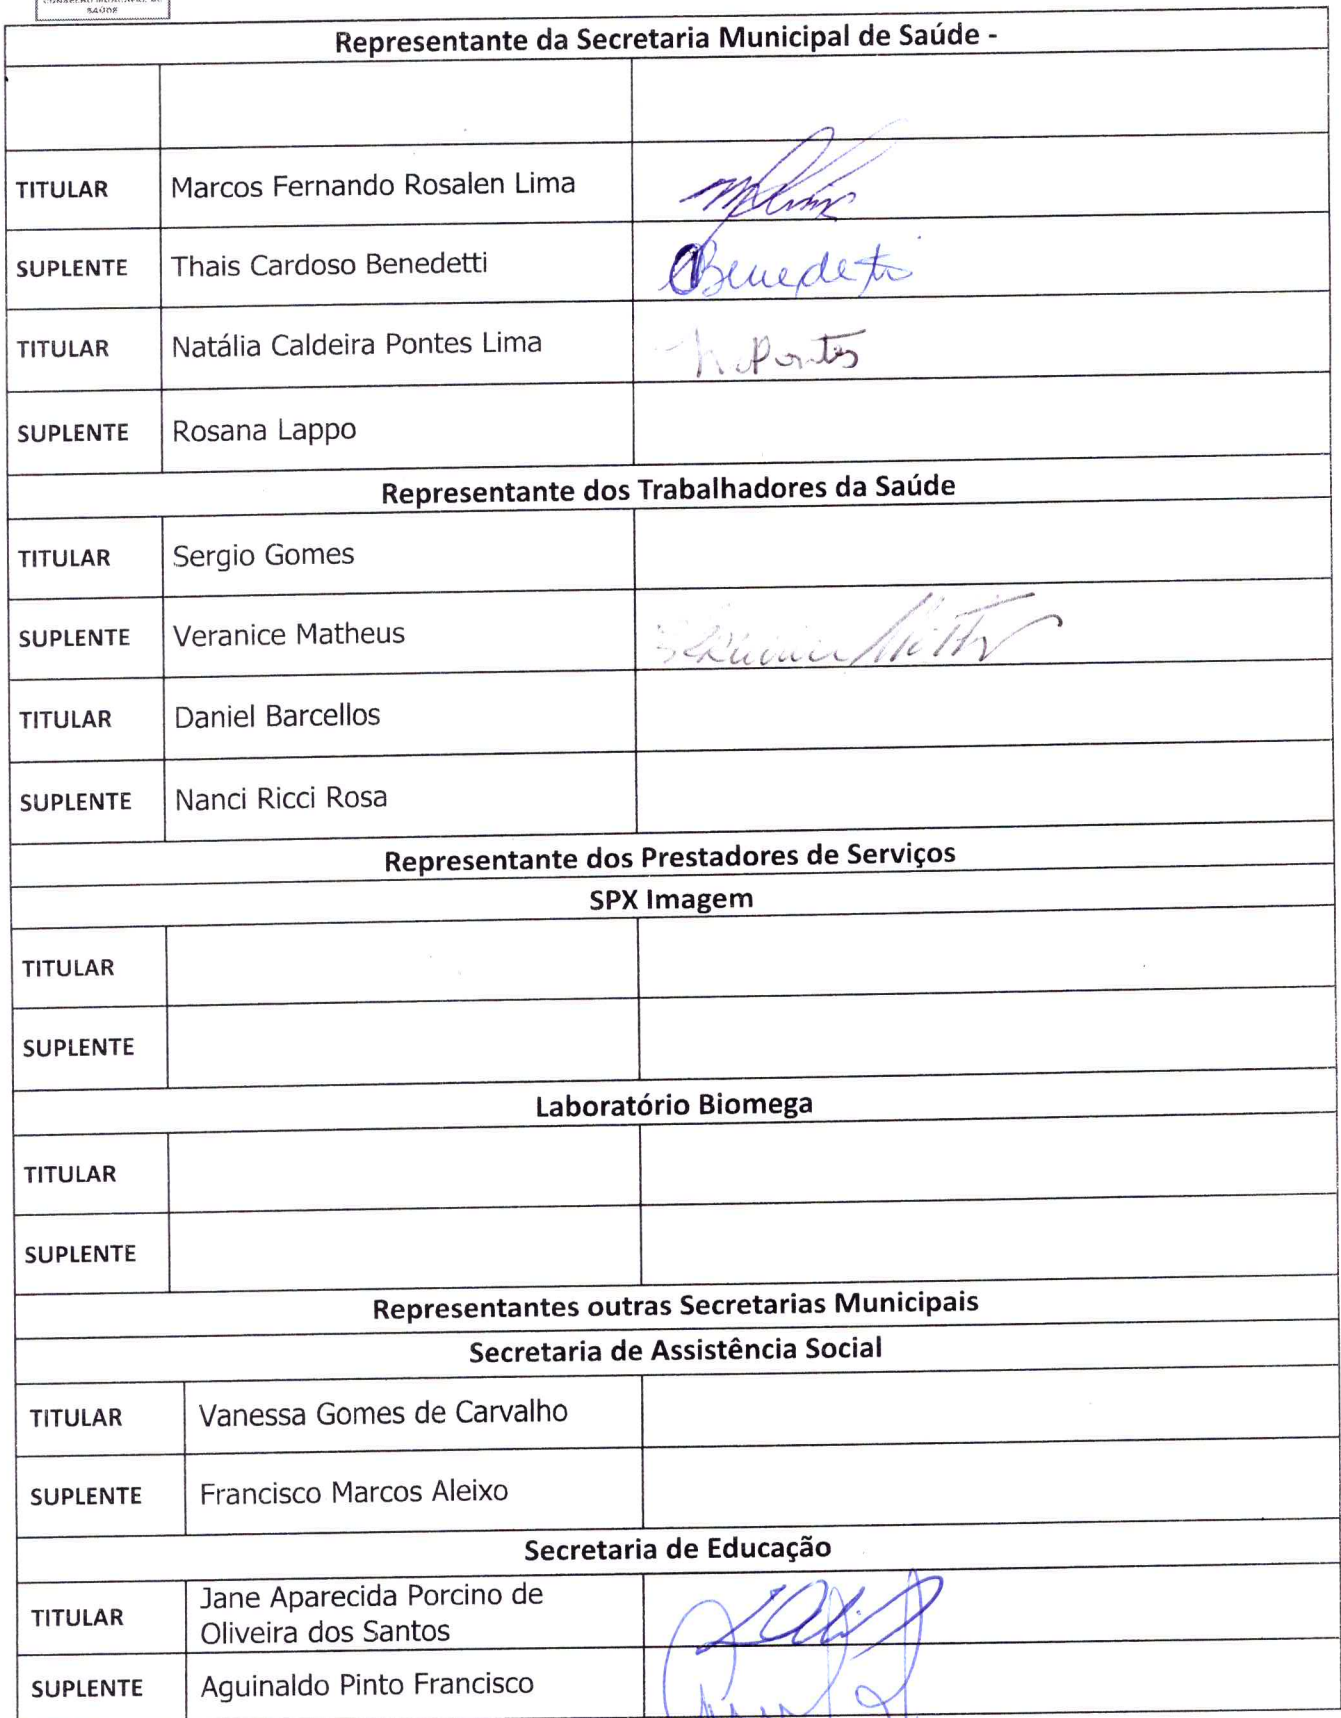 SAÚDE
Representante da Secretaria Municipal de Saúde -
TITULAR Marcos Fernando Rosalen Lima
SUPLENTE Thais Cardoso Benedetti Benedetti
TITULAR Natália Caldeira Pontes Lima N. Pontes
SUPLENTE Rosana Lappo
Representante dos Trabalhadores da Saúde
TITULAR Sergio Gomes
SUPLENTE Veranice Matheus
TITULAR Daniel Barcellos
SUPLENTE Nanci Ricci Rosa
Representante dos Prestadores de Serviços
SPX Imagem
TITULAR
SUPLENTE
Laboratório Biomega
TITULAR
SUPLENTE
Representantes outras Secretarias Municipais
Secretaria de Assistência Social
TITULAR Vanessa Gomes de Carvalho
SUPLENTE Francisco Marcos Aleixo
Secretaria de Educação
TITULAR Jane Aparecida Porcino de
Oliveira dos Santos
SUPLENTE Aguinaldo Pinto Francisco